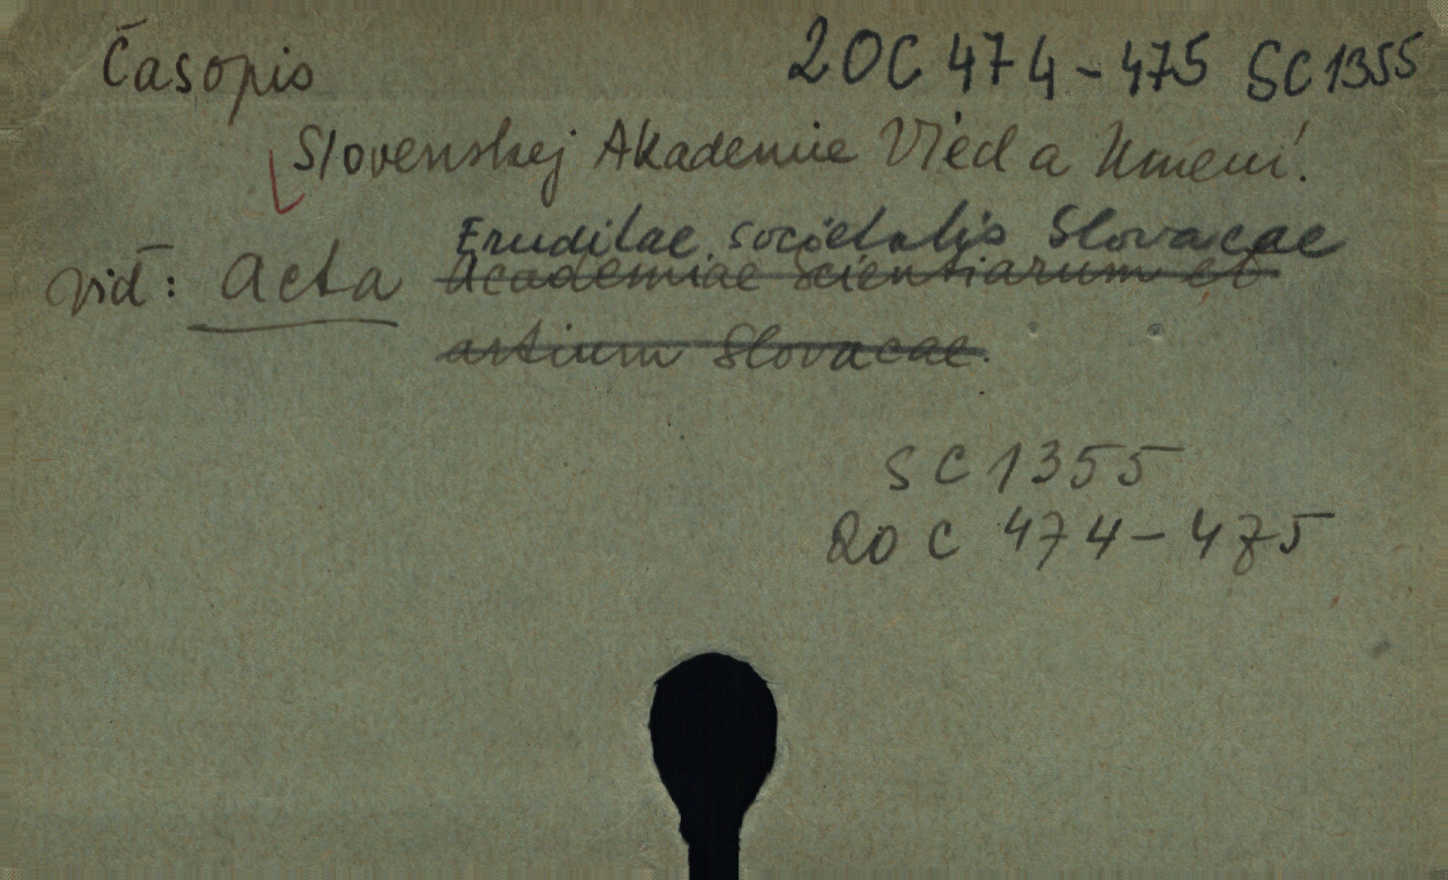 Časopis 20C 474-475 SC 1355
Slovenskej Akademie Vied a Umení.
viď: Acta Eruditae societatis Slovacae
Academiae Scientiarum et
artium Slovacae.
SC 1355
20 C 474-475